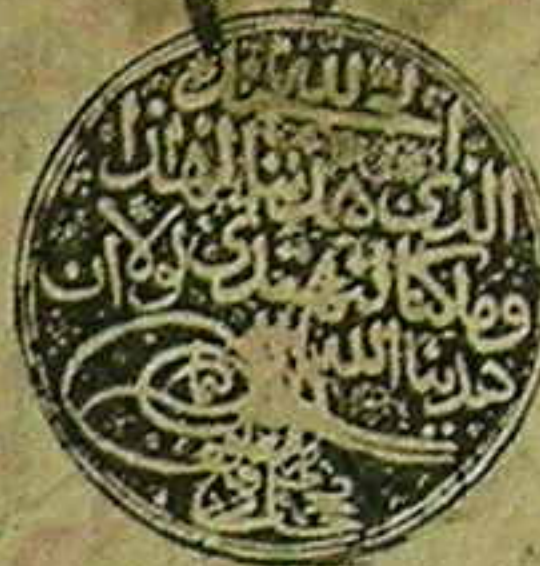 الحمد لله
الذى هدينا لهذا
وما كنا لنهتدي لولا ان
هدينا الله
وقف